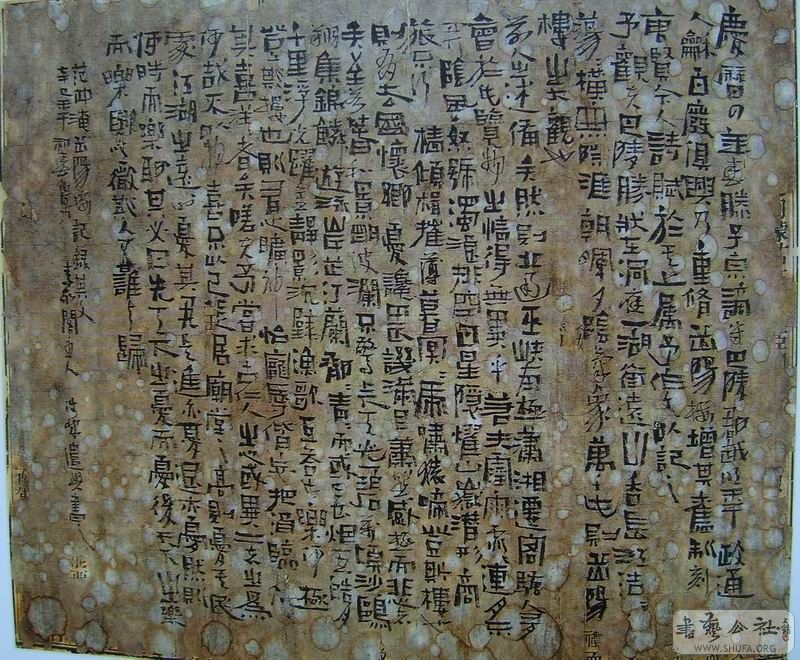 慶曆四年春滕子京謫守巴陵郡越明年政通
人龢百廢俱興乃重修岳陽樓增其舊制刻
唐賢今人詩賦於其上屬予作文以記之
予觀夫巴陵勝狀在洞庭一湖銜遠山吞長江浩
蕩橫無際涯朝暉夕陰氣象萬千也則岳陽
樓之大觀也
前人之述備矣然則北通巫峽南極瀟湘遷客騷人多
會於此覽物之情得無異乎若夫霪雨霏連月
陰風怒號濁浪排空日星隱燿山嶽潛形商
旅不行檣傾楫摧薄暮冥虎嘯猿啼豈斯樓
則有去國懷鄉憂讒畏譏滿目蕭然感極而悲者
矣至若春和景明波瀾不驚上下天光一碧萬頃沙鷗
翔集錦鱗遊泳岸芷汀蘭郁青而或長煙一空皓月
千里浮光躍金靜影沉璧漁歌互答此樂何極
登斯樓也則有心曠神怡寵辱皆忘把酒臨風
其喜洋者矣嗟夫予嘗求古仁人之心或異二者之為
何哉不以物喜不以己悲居廟堂之高則憂其民
處江湖之遠則憂其君是進亦憂退亦憂然則
何時而樂耶其必曰先天下之憂而憂後天下之樂
而樂歟噫微斯人吾誰與歸
范仲淹岳陽樓記錄其文
辛巳年初春
書
書藝公社
WWW.SHUFA.ORG